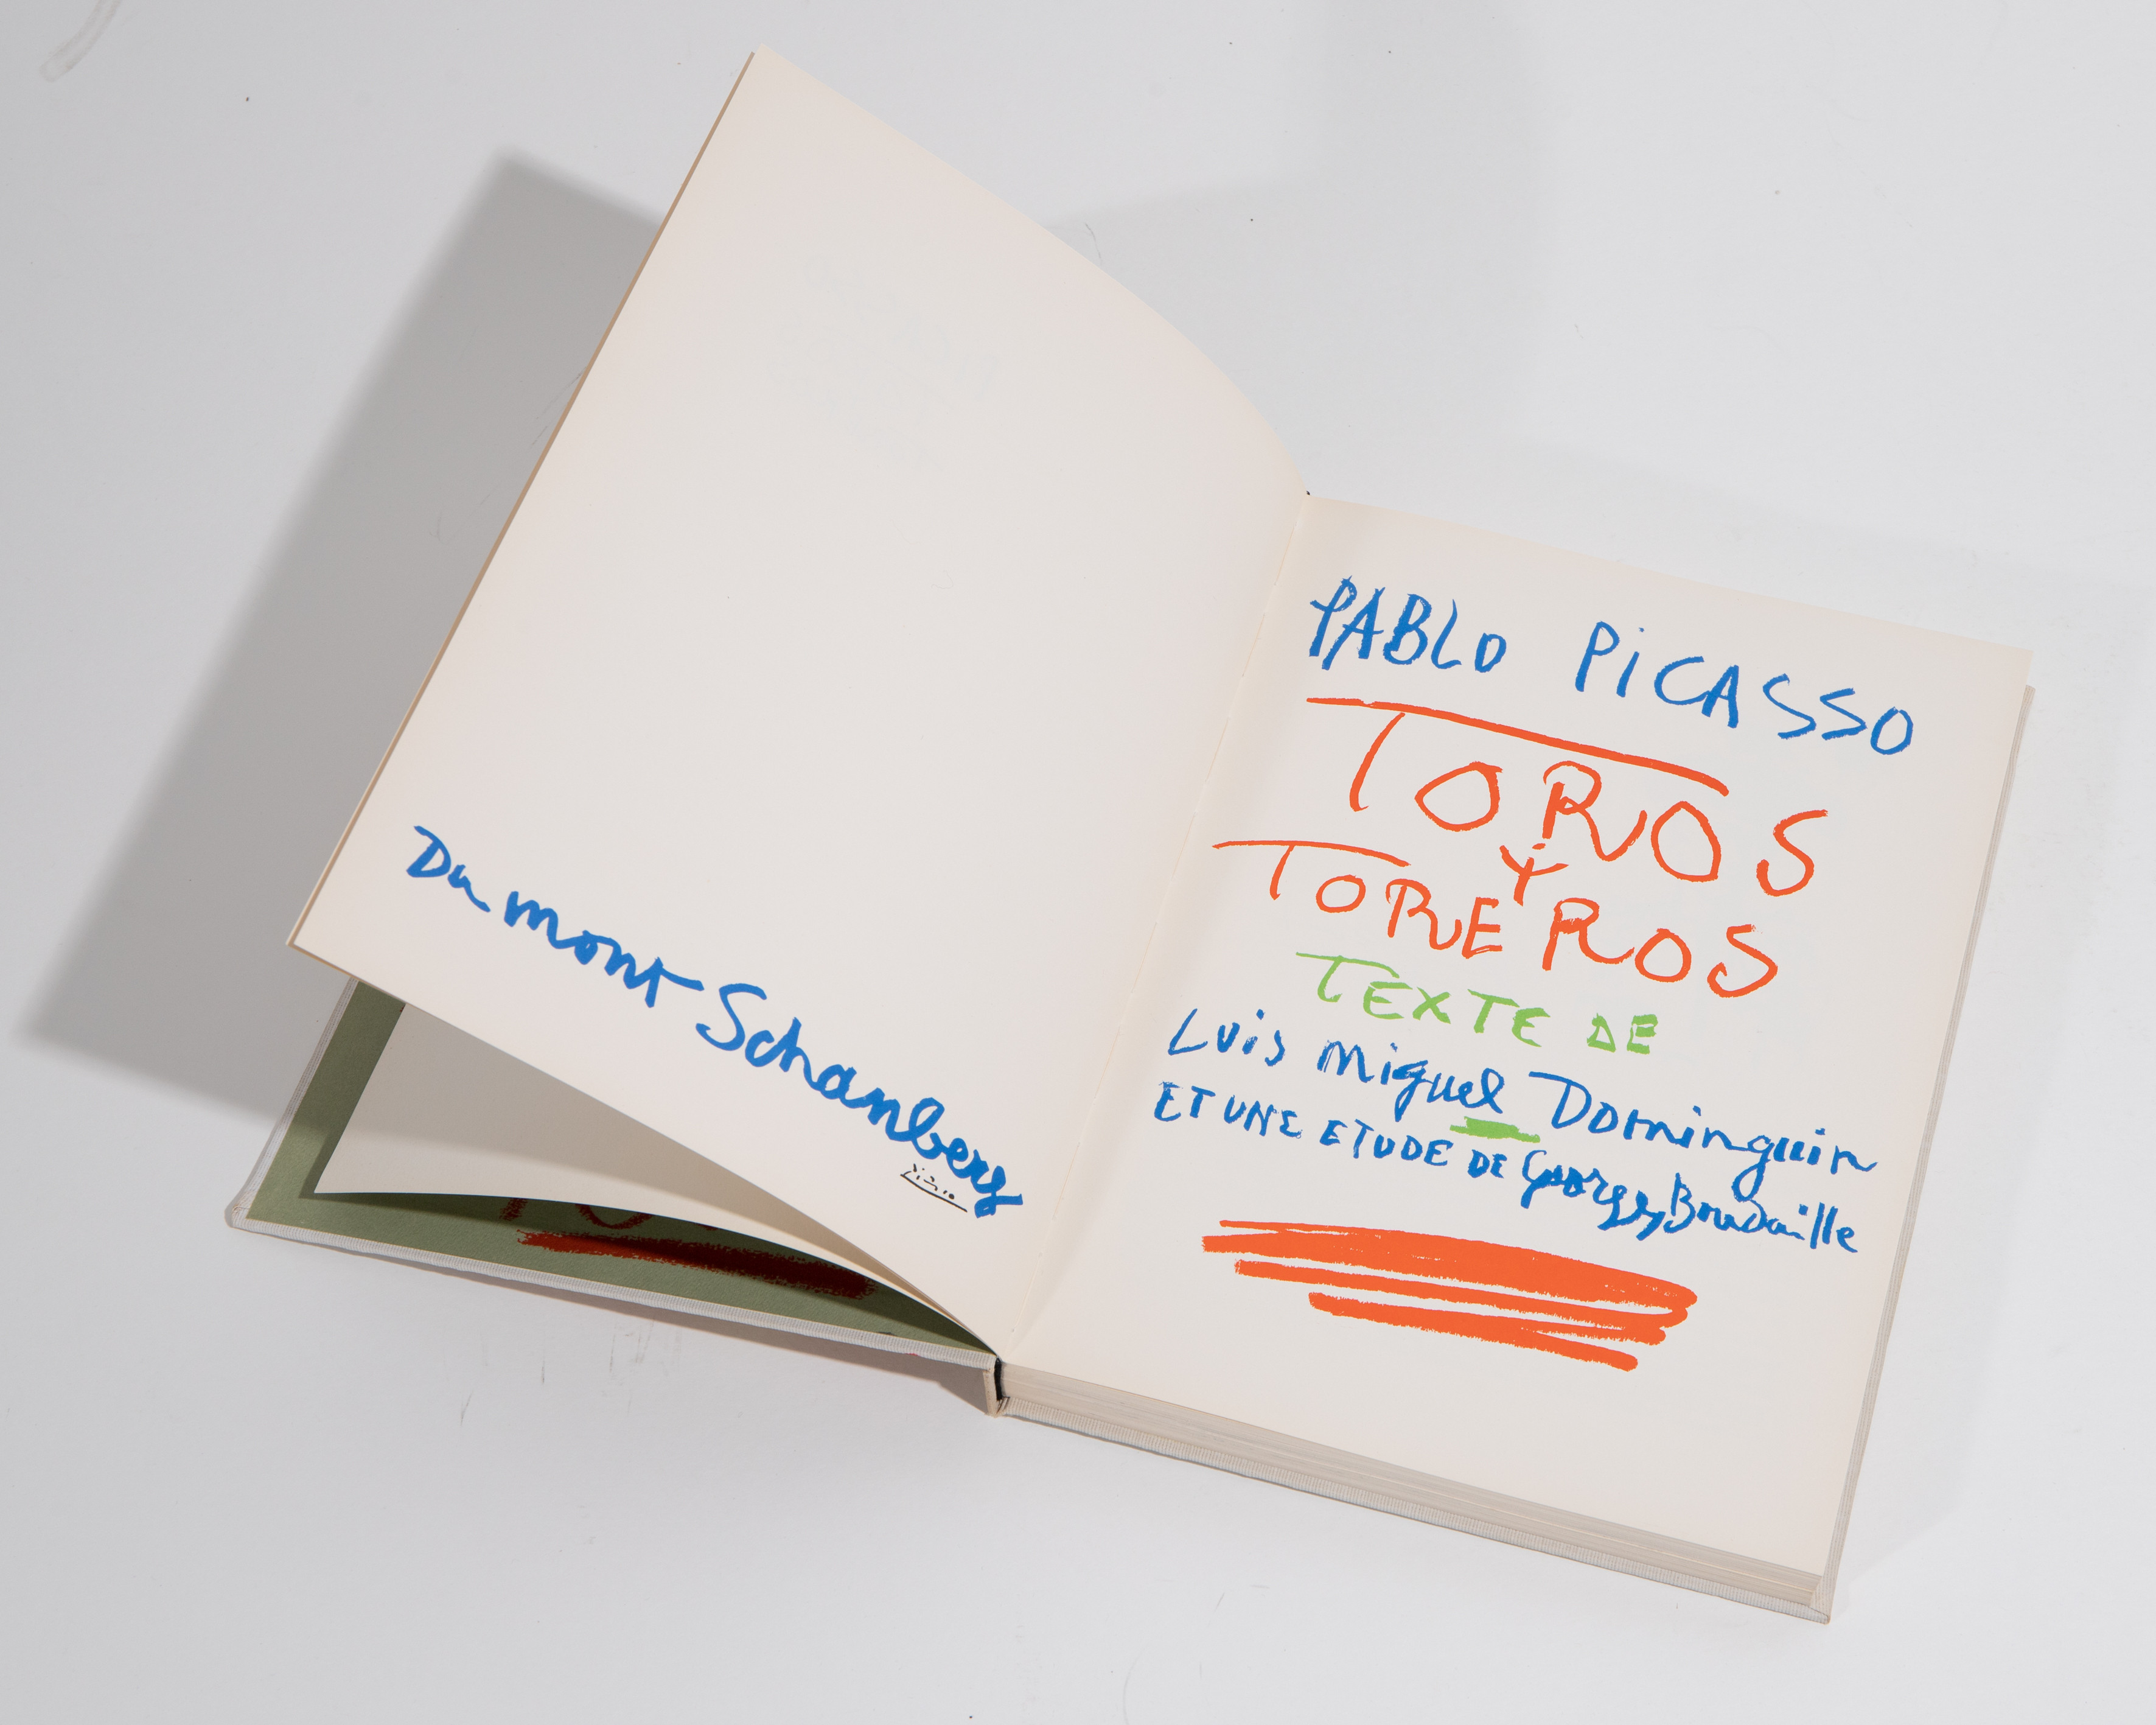 Du mont Schauberg
PABLO PiCASSO
TOROS
Y
TOREROS
TEXTE DE
Luis Miguel Dominguin
ET UNE ETUDE DE Georges Boudaille